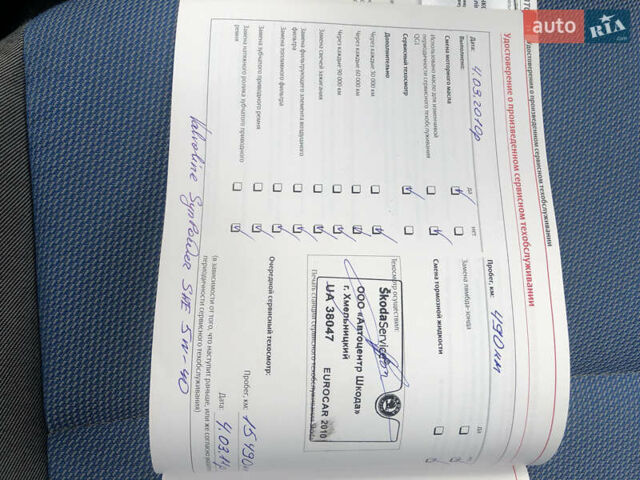 auto RIA
.com
Удостоверение о произведенном сервисном техобслуживании
Удостоверение о произведенном сервисном техобслуживании
Дата: 4.03.2010р
Пробег, км: 490км
Выполнено: да нет
Смена моторного масла
Использовано масло для изменчивой
периодичности сервисного техобслуживания
QG1
Сервисный техосмотр
Дополнительно
Через каждые 30 000 км
Через каждые 60 000 км
Через каждые 90 000 км
Замена свечей зажигания
Замена фильтрующего элемента воздушного
фильтра
Замена топливного фильтра
Замена зубчатого приводного ремня
Замена натяжного ролика зубчатого приводного
ремня
Valvoline SynPower 5W-40
Да
Замена лямбда-зонда
Смена тормозной жидкости
Техосмотр осуществил:
ŠkodaService
ООО «Автоцентр Шкода»
г. Хмельницкий
UA 38047 EUROCAR 2010
Печать станции сервисного техобслуживания
Очередной сервисный техосмотр:
Пробег, км: 15490
Дата: 4.03.11
(в зависимости от того, что наступит раньше, или же согласно
периодичности сервисного техобслуживания)